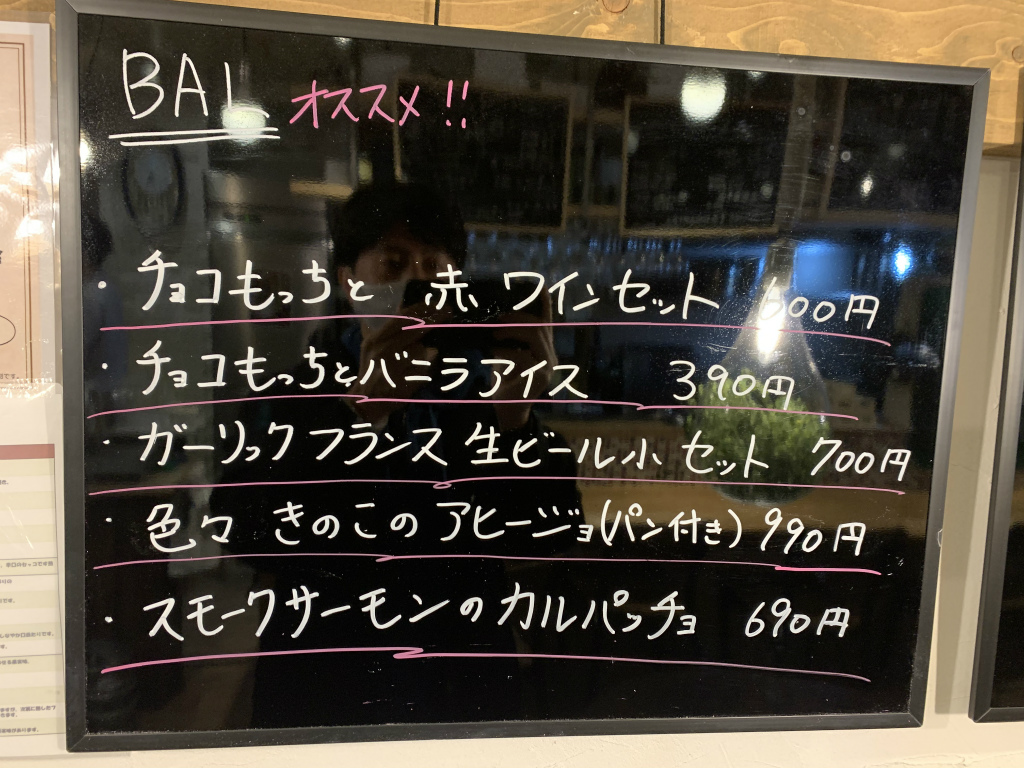 BAL オススメ!!
・チョコもっちと 赤ワインセット 600円
・チョコもっちとバニラアイス 390円
・ガーリックフランス 生ビール小セット 700円
・色々 きのこのアヒージョ(パン付き) 990円
・スモークサーモンのカルパッチョ 690円